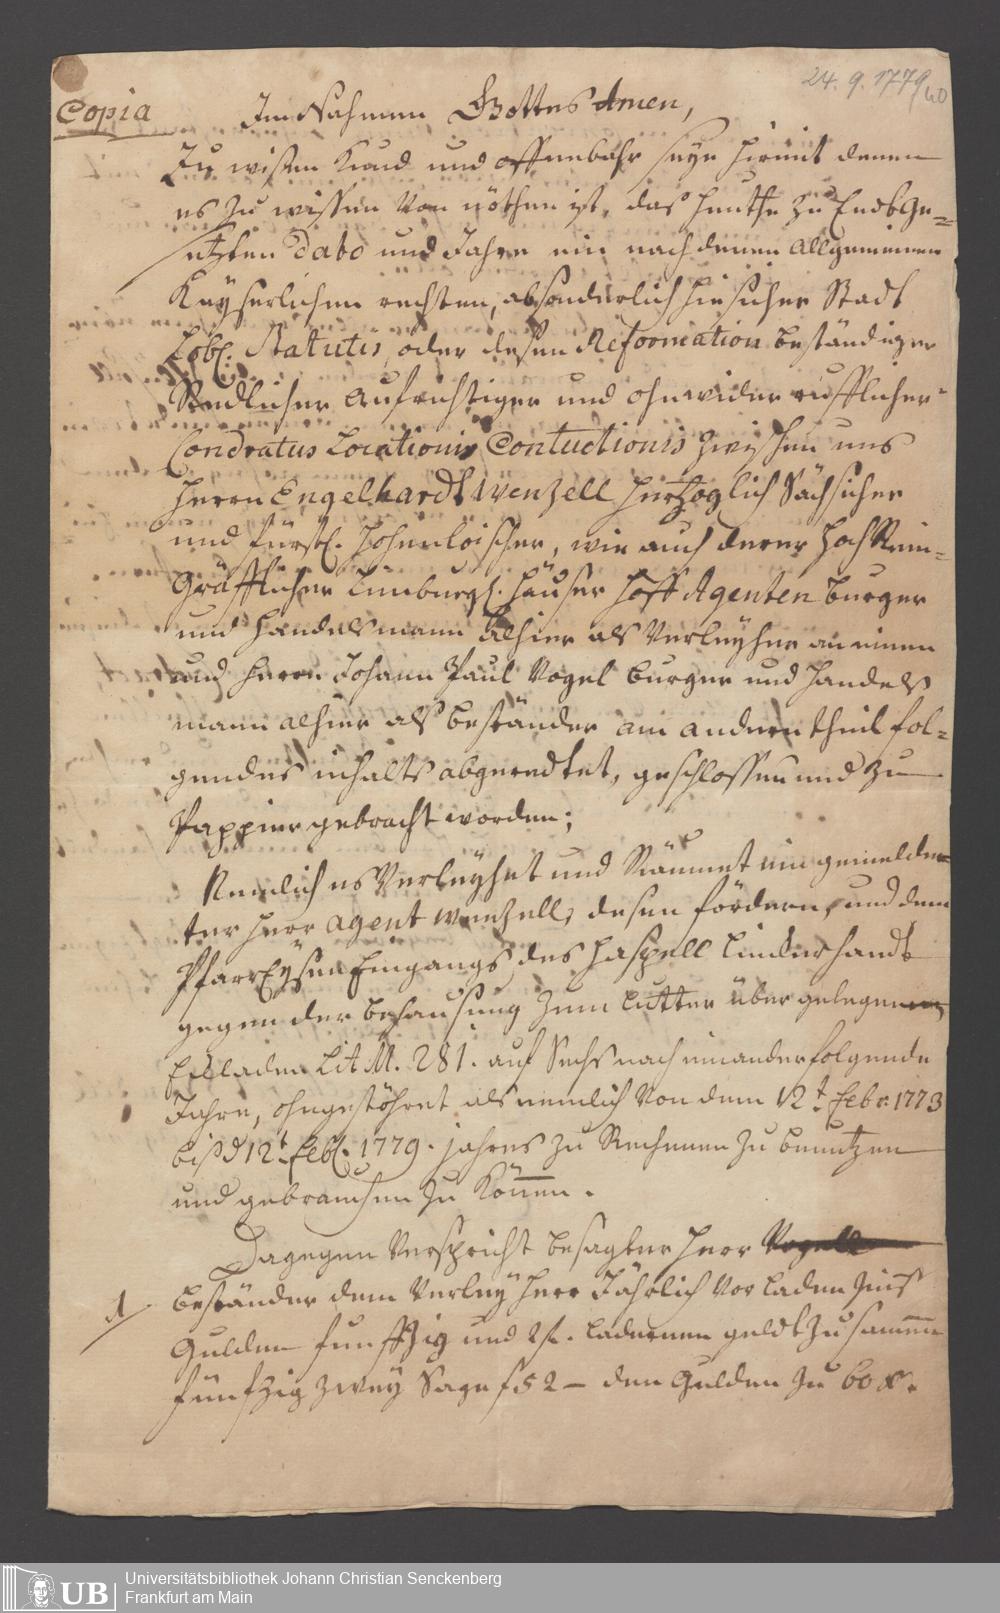 24. 9. 1779
60
Copia
Im Nahmen Gottes Amen,
Zu wißen Kund und offenbahr seye hiemit denen
es zu wissen Von nöthen ist, das heuthe zu Endsge-
setzten Dato und Jahre ein nach denen Allgemeinen
Kayserlichen rechten, absonderlich hiesicher Stadt
Löbl. Statutis, oder desen Reformation beständiger
Redlicher Aufrichtiger und ohnwider rufflicher
Condratus Locationis Contuctionis zwischen uns
Herrn Engelhardt Wenzell Hertzoglich Sächsicher
und Fürstl. Hohenloischer, wie auch derer Hoch Rein-
Gräfflicher Limburgl. Häuser Hoff Agenten burger
und Handelsmann alhier als Verleyher an einen
und Herrn Johann Paul Vogel burger und Handels
mann alhier als beständer am andern theil fol-
gendes inhalts abgeredtet, geschlossen und zu
Pappier gebracht worden;
Nemlich es Verleyhet und Räumet ein gemelde-
ter Herr Agent Wenzell, desen fördern, und dem
PfarrEysen Eingangs des Haspell lincker handt
gegen der behausung zum Lutter über gelegenen
Eckladen Lit. M. 281. auf Sechs nach einander folgende
Jahre, ohngestöhret als nemlich Von dem 12t. Febr. 1773
biß d 12t. Febl. 1779. jahres zu Rechenen zu benutzen
und gebrauchen zu Können.
Dagegen Verspricht besagter Herr Vogell
1/ beständer dem Verleyherr Jährlich Vor laden Zinß
Gulden funffzig und 2 f. ladernen geldt zu samme
fünfzig zwey Sage f 52 — den Gulden zu 60 x.
Universitätsbibliothek Johann Christian Senckenberg
Frankfurt am Main
UB